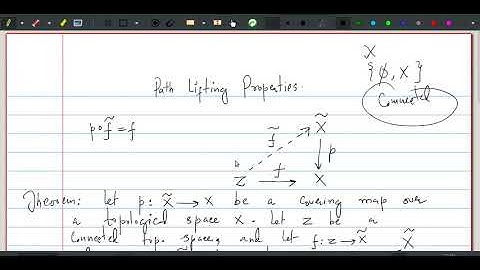 X
{ϕ, X}
Connected
Path Lifting Properties.
p∘f̃ = f
X̃
f̃
p
Z f X
Theorem: let p: X̃ → X be a covering map over
a topological space X. Let Z be a
connected top. space, and let f: Z → X̃ X̃